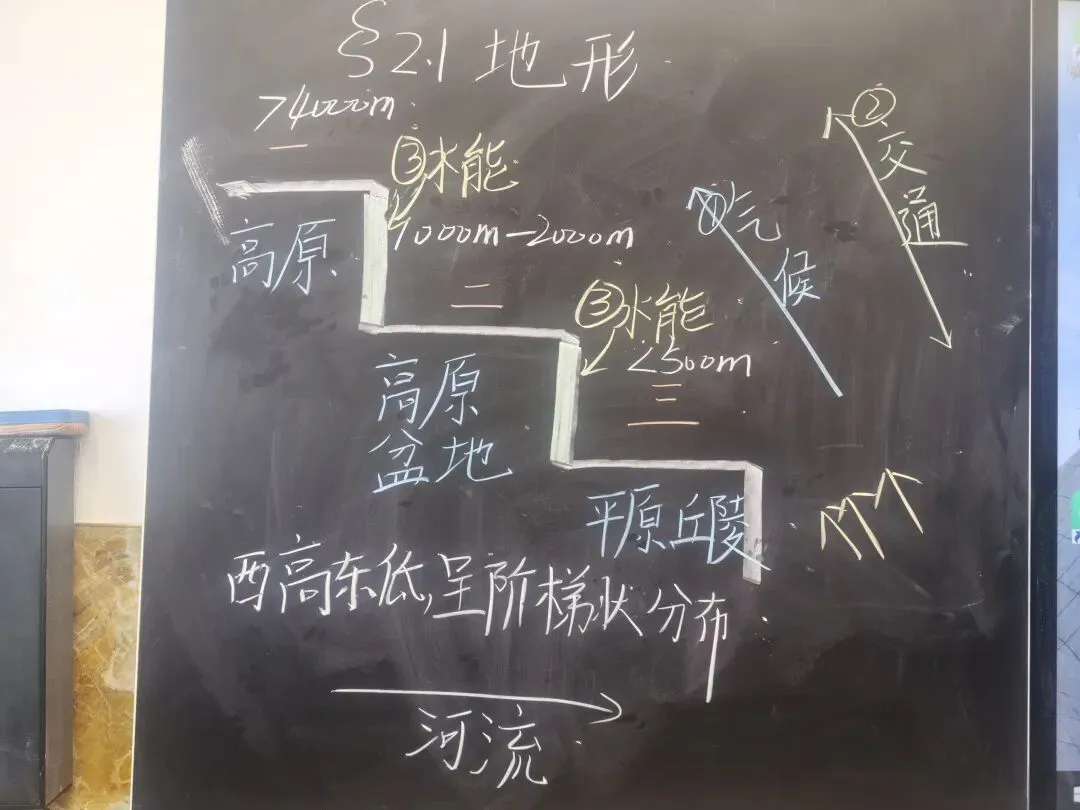 §2.1 地形
>4000m
一
③水能
高原
4000m-2000m
二
③水能
<500m
三
高原
盆地
平原丘陵
①气候
②交通
西高东低,呈阶梯状分布
河流